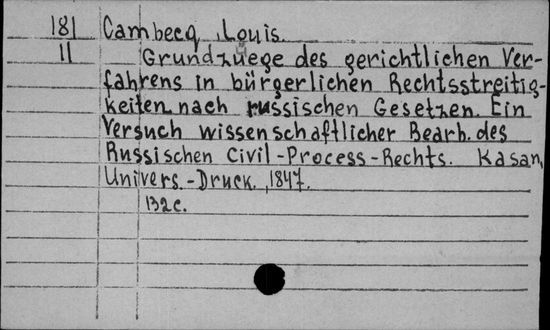 181 Cambecq, Louis.
11 Grundzüege des gerichtlichen Ver-
fahrens in bürgerlichen Rechtsstreitig-
keiten nach russischen Gesetzen. Ein
Versuch wissenschaftlicher Bearb. des
Russischen Civil-Process-Rechts. Kasan,
Univers.-Druck., 1847.
132c.